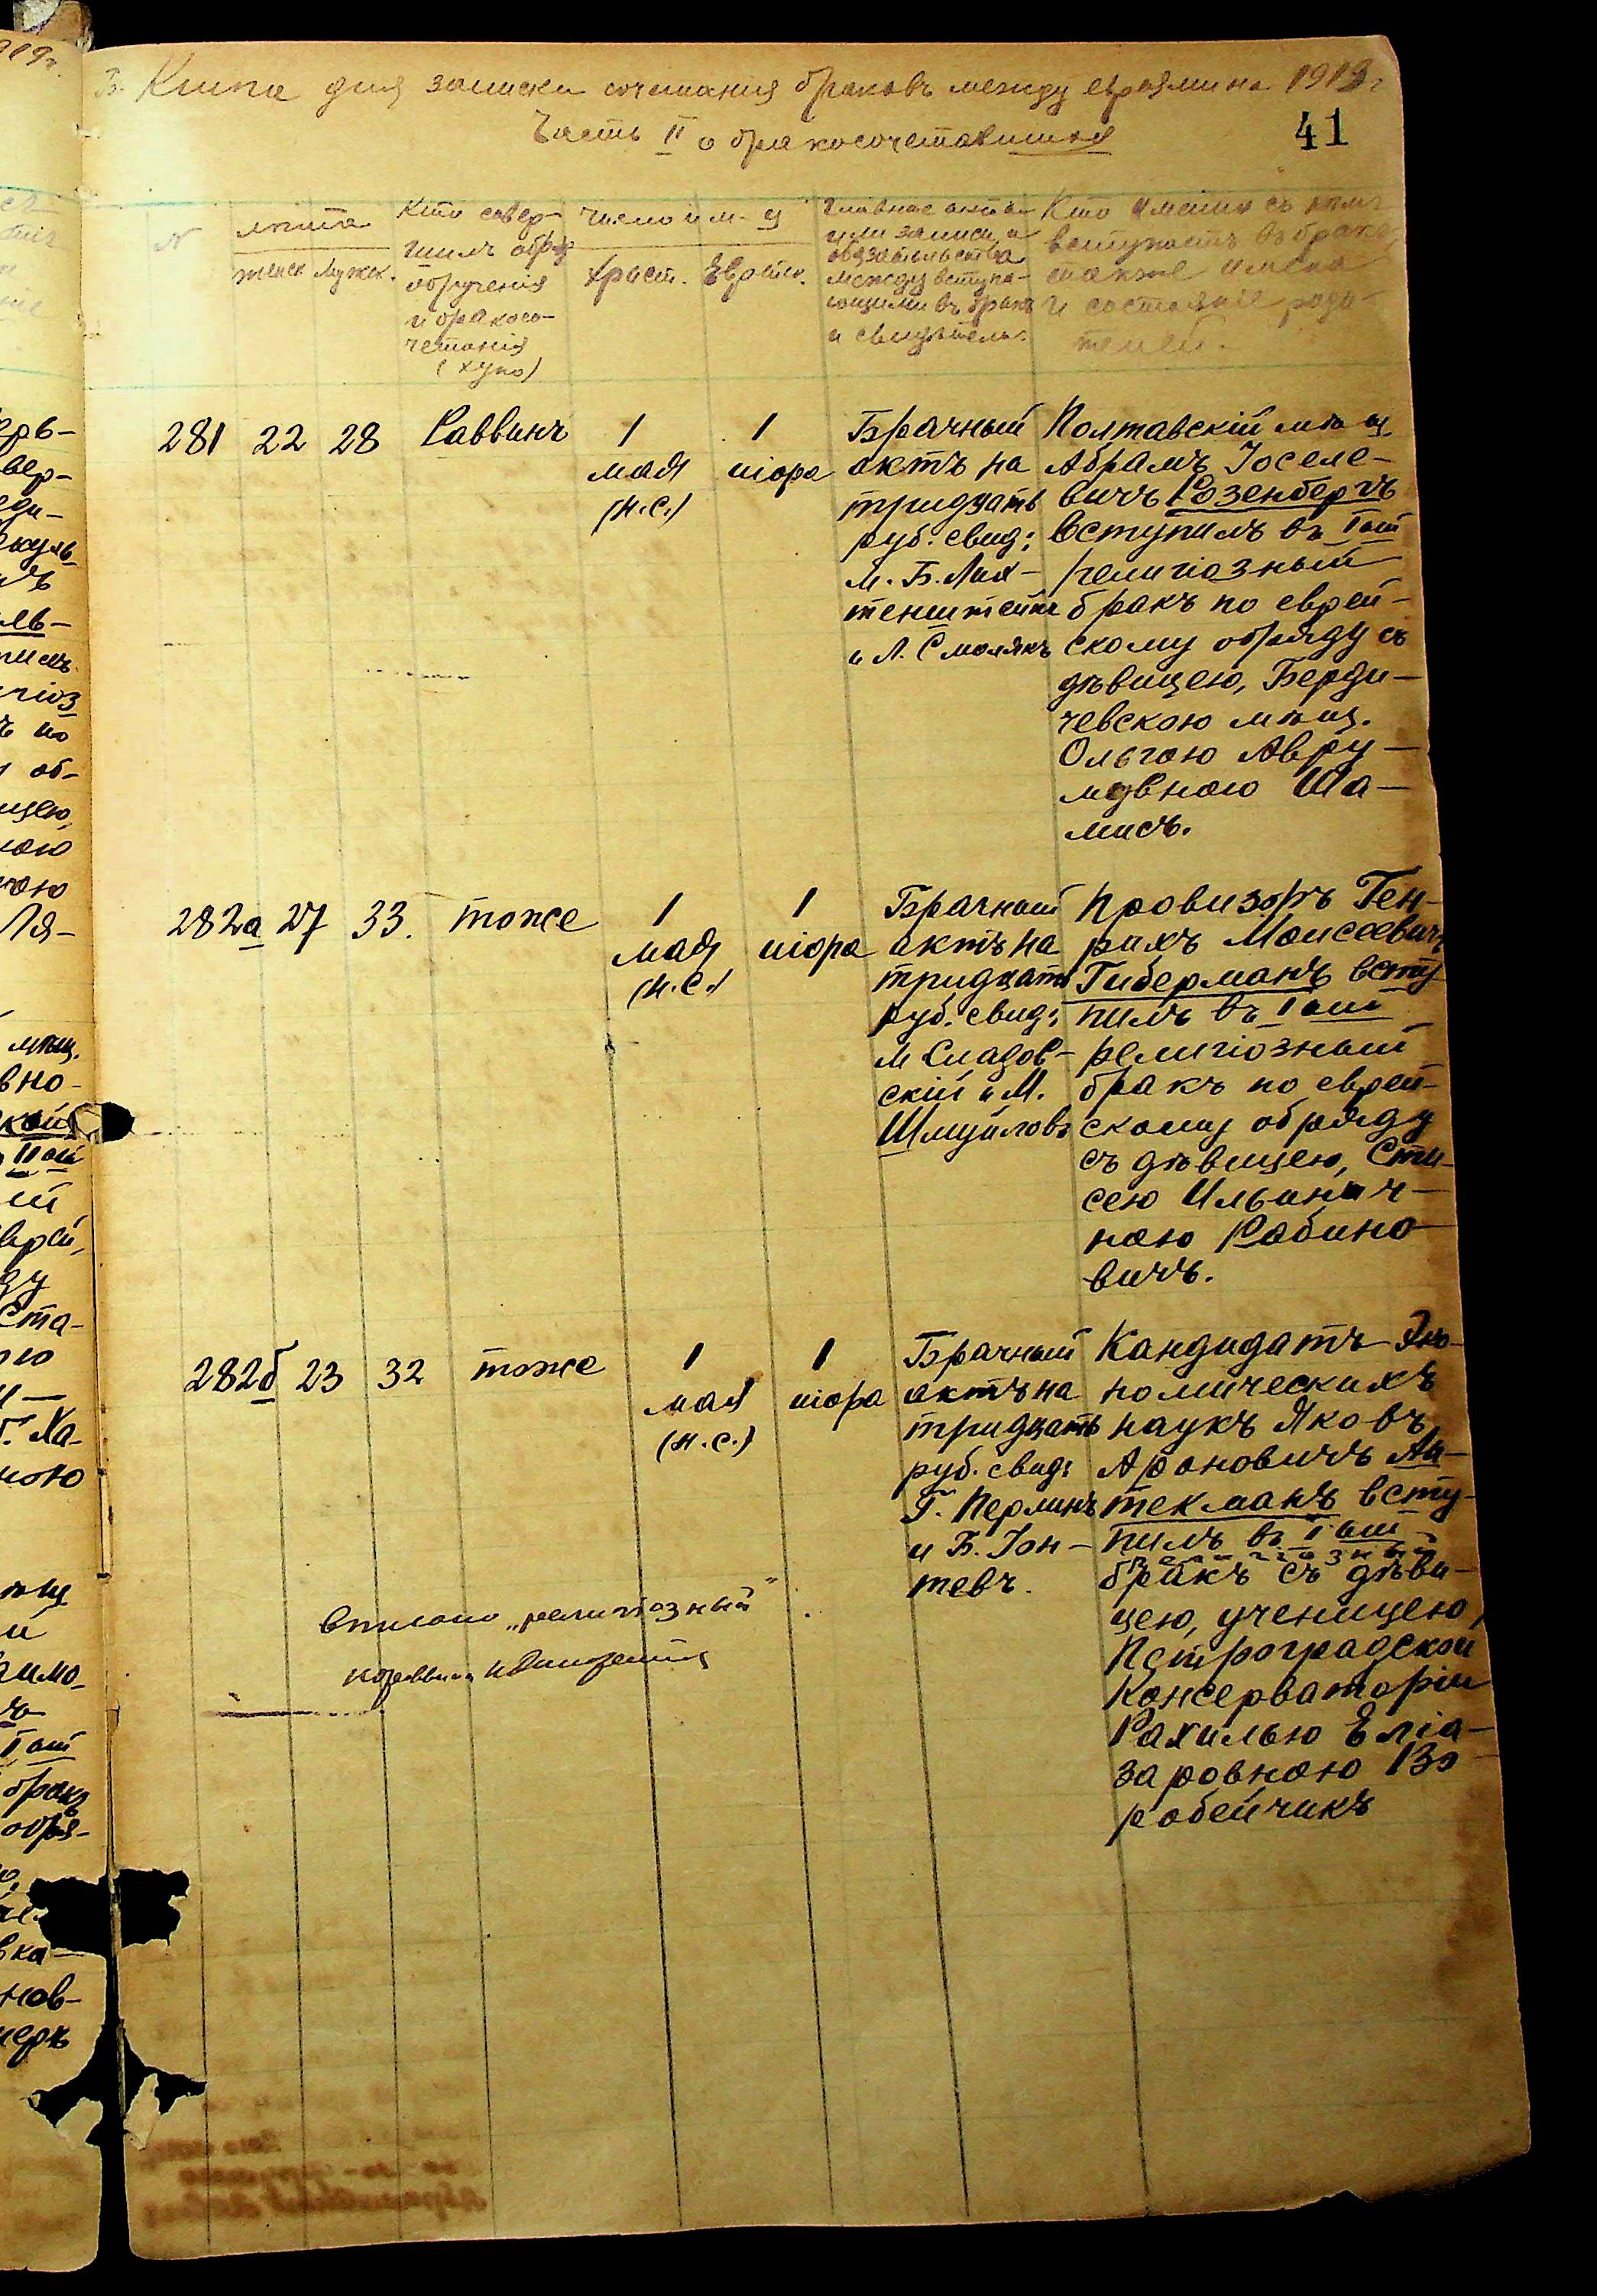 Книга для записки сочетанія браковъ между евреями на 1919 г.
Часть II о бракосочетавшихся
41
№
лѣта
женск. Мужск.
Кто совер-
шилъ обряд
обрученія
и бракосо-
четанія
(хупо)
Число и м-ц
Христ. Еврейск.
Главные акты
или записи и
обязательства
между вступа-
ющими въ бракъ
и свидѣтель.
Кто именно съ кѣмъ
вступаетъ въ бракъ,
также имена
и состояніе роди-
телей.
281 22 28 Раввинъ
1
мая
(н.с.)
1
іиора
Брачный
актъ на
тридцать
руб. свид:
М. Б. Лих-
тенштейнъ
и Л. Смолякъ
Полтавскій мѣщ.
Абрамъ Іоселе-
вичъ Розенбергъ
вступилъ въ Iый
религіозный
бракъ по еврей-
скому обряду съ
дѣвицею, Берди-
чевскою мѣщ.
Ольгою Авру-
мовною Ша-
мисъ.
282а 27 33. тоже
1
мая
(н.с.)
1
іиора
Брачный
актъ на
тридцать
руб. свид:
М Сладов-
скій и М.
Шмуйловъ
Провизоръ Ген-
рихъ Моисеевичъ
Гиберманъ всту-
пилъ въ Iый
религіозный
бракъ по еврей-
скому обряду
съ дѣвицею, Сти-
сею Ильинич-
ною Рабино-
вичъ.
282б 23 32 тоже
1
мая
(н.с.)
1
іиора
Брачный
актъ на
тридцать
руб. свид:
Г. Перлинъ
и Б. Іон-
тевъ.
Кандидатъ Эко-
номическихъ
наукъ Яковъ
Ароновичъ Ай-
текманъ всту-
пилъ въ Iый
религіозный
бракъ съ дѣви-
цею, ученицею
Петроградской
Консерваторіи
Рахилью Еліа-
заровною Во-
робейчикъ
Вписано „религіозный"